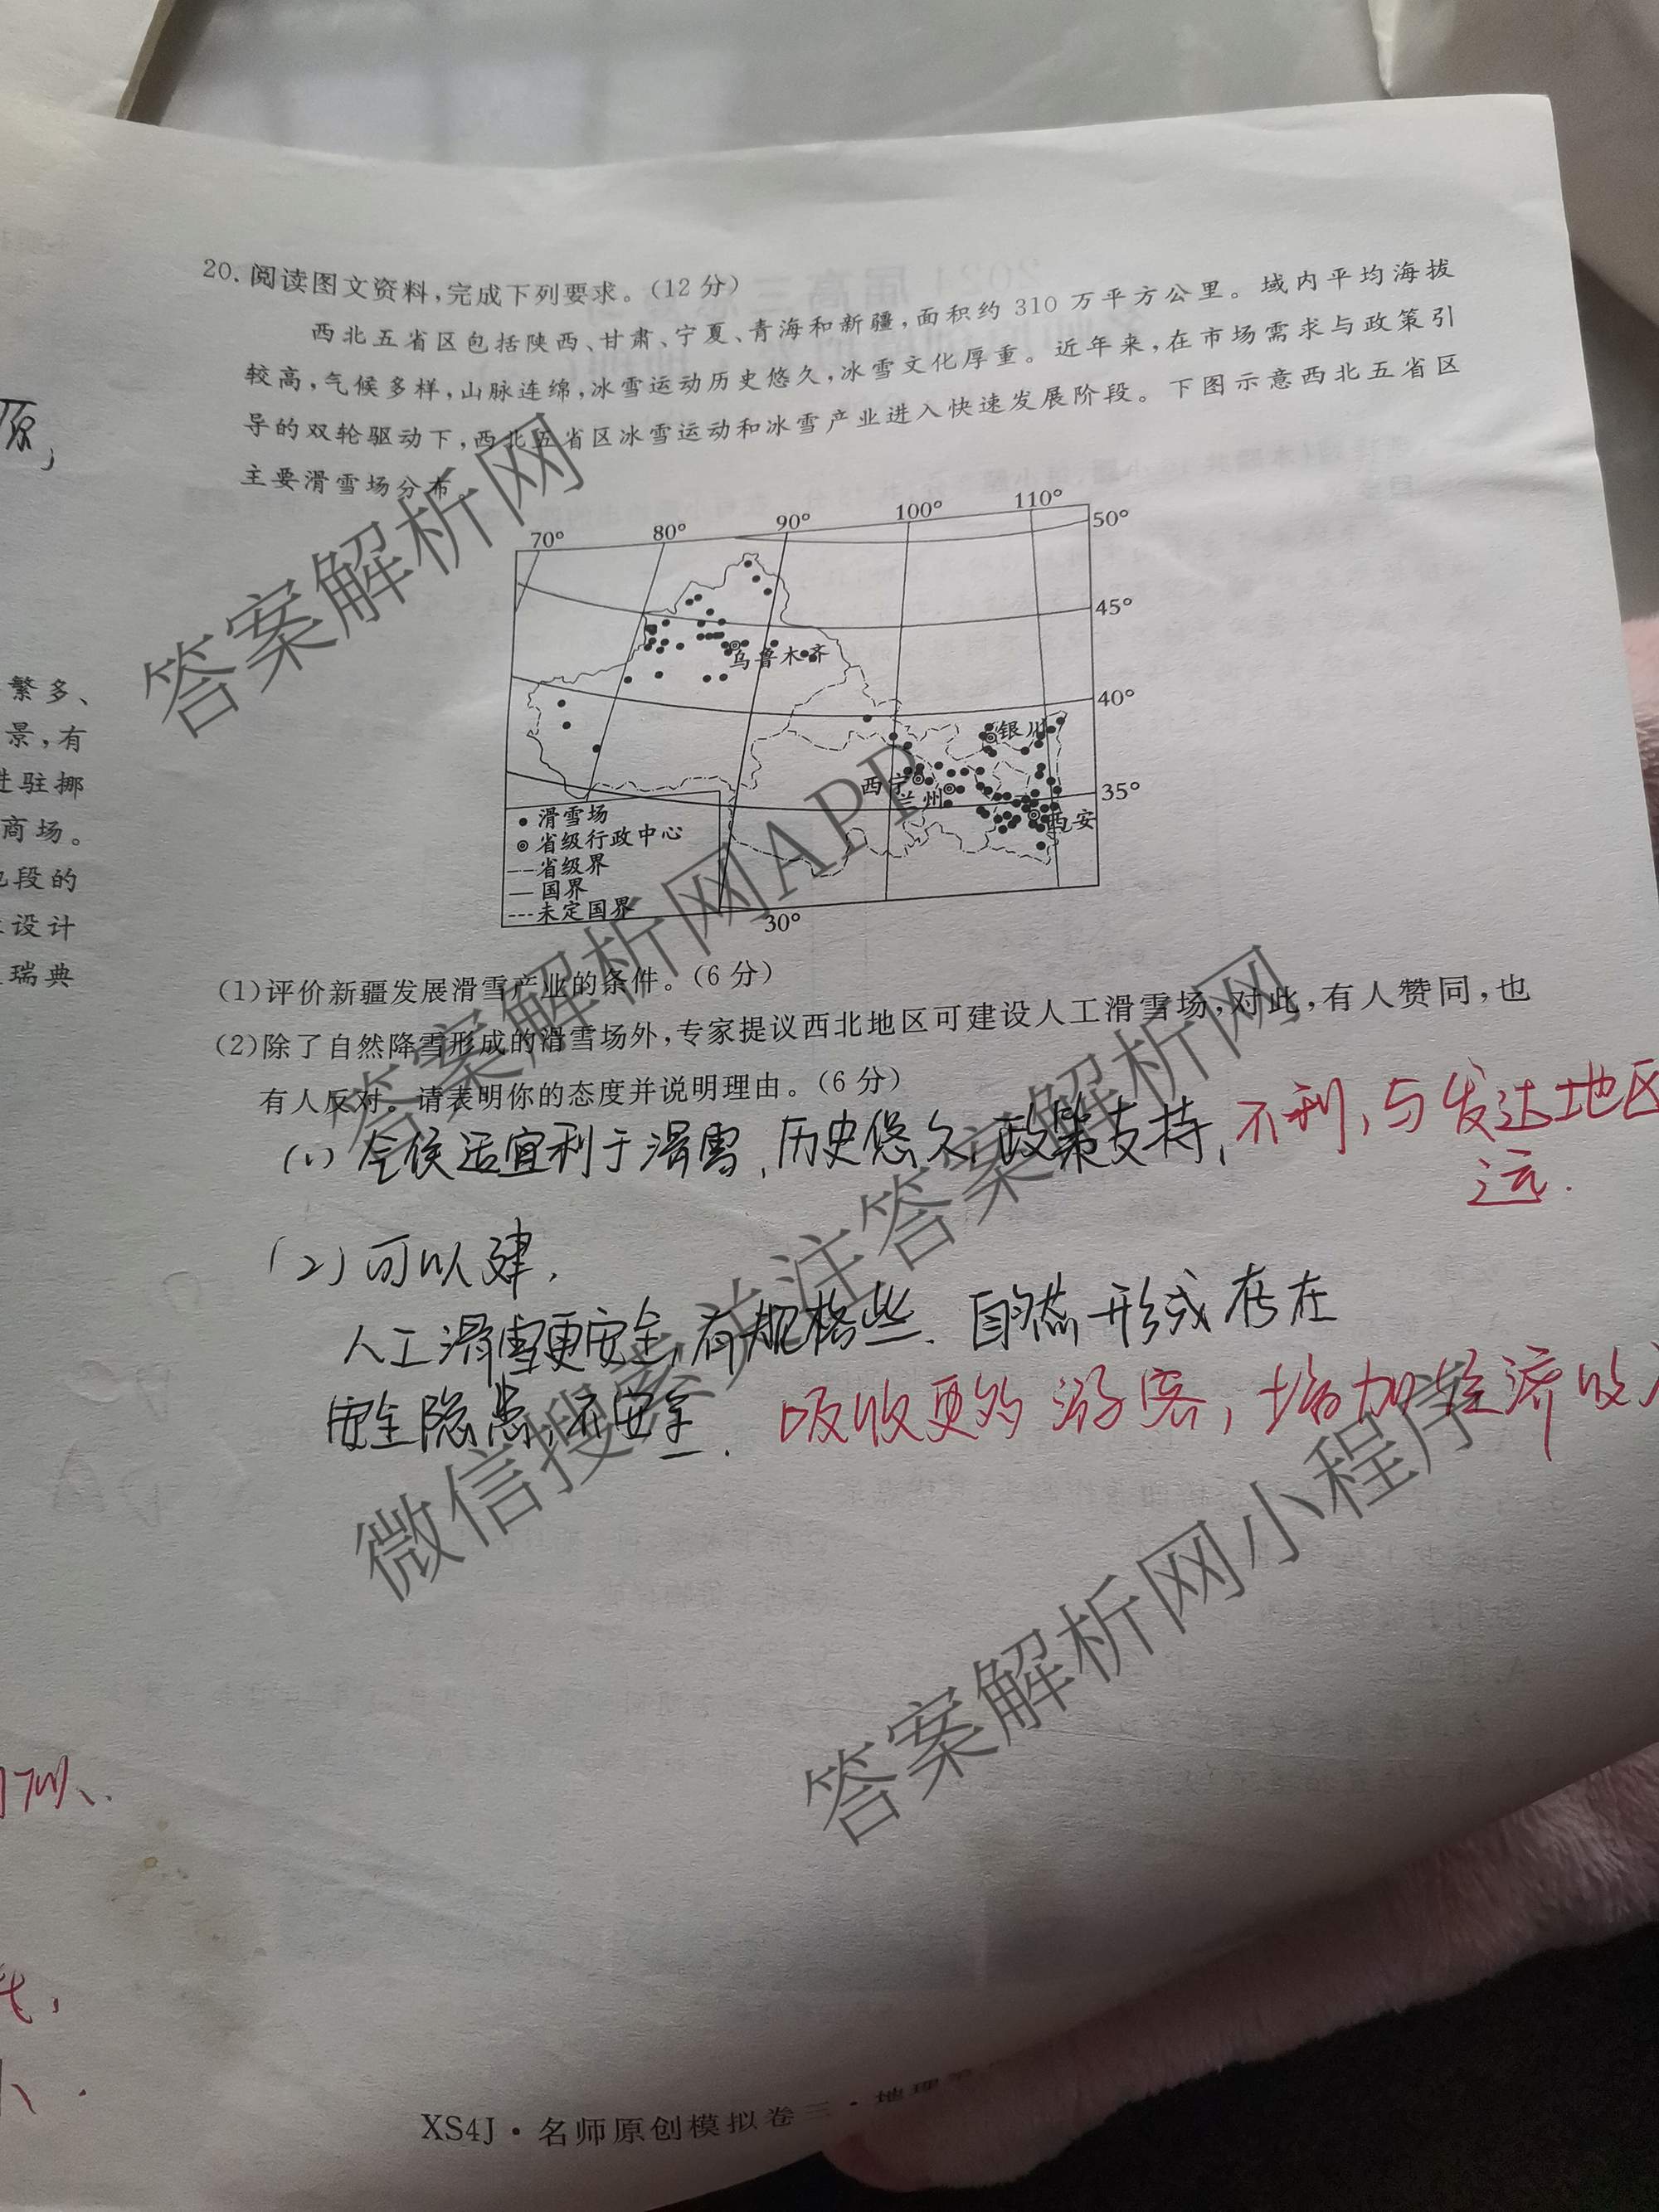 原,
繁多、
景,有
进驻挪
商场。
段的
设计
瑞典
20.阅读图文资料,完成下列要求。(12分)
西北五省区包括陕西、甘肃、宁夏、青海和新疆,面积约310万平方公里。域内平均海拔
较高,气候多样,山脉连绵,冰雪运动历史悠久,冰雪文化厚重。近年来,在市场需求与政策引
导的双轮驱动下,西北五省区冰雪运动和冰雪产业进入快速发展阶段。下图示意西北五省区
主要滑雪场分布。
70° 80° 90° 100° 110°
50°
45°
40°
35°
30°
乌鲁木齐
银川
西宁
兰州
西安
滑雪场
省级行政中心
省级界
国界
未定国界
(1)评价新疆发展滑雪产业的条件。(6分)
(2)除了自然降雪形成的滑雪场外,专家提议西北地区可建设人工滑雪场,对此,有人赞同,也
有人反对。请表明你的态度并说明理由。(6分)
(1) 气候适宜利于滑雪,历史悠久,政策支持,不利,与发达地区
远.
(2)可以建,
人工滑雪更安全,有规格些.自然形成存在
安全隐患,不安全.吸收更多游客,增加经济收
XS4J·名师原创模拟卷三·地理
答案解析网
答案解析网APP
微信搜索关注答案解析网
答案解析网小程序